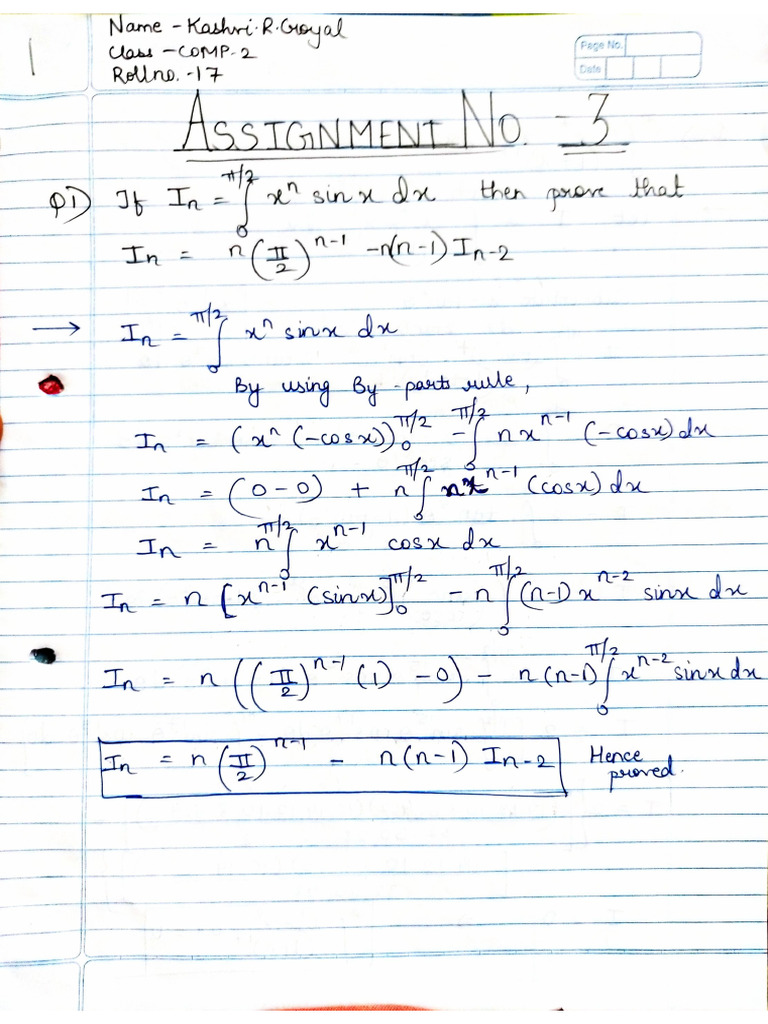 Name - Kashvi.R.Goyal
Class - COMP-2
Roll no. - 17
Page No.
Date
1
ASSIGNMENT NO. - 3
Q1) If Iₙ = ∫₀^(π/2) xⁿ sin x dx then prove that
Iₙ = n(π/2)^(n-1) - n(n-1) Iₙ₋₂
→ Iₙ = ∫₀^(π/2) xⁿ sinx dx
By using By-parts rule,
Iₙ = (xⁿ (-cosx))₀^(π/2) - ∫₀^(π/2) n x^(n-1) (-cosx) dx
Iₙ = (0-0) + n ∫₀^(π/2) x^(n-1) (cosx) dx
Iₙ = n ∫₀^(π/2) x^(n-1) cosx dx
Iₙ = n [x^(n-1) (sinx)]₀^(π/2) - n ∫₀^(π/2) (n-1) x^(n-2) sinx dx
Iₙ = n((π/2)^(n-1) (1) - 0) - n(n-1) ∫₀^(π/2) x^(n-2) sinx dx
Iₙ = n(π/2)^(n-1) - n(n-1) Iₙ₋₂ Hence
proved.